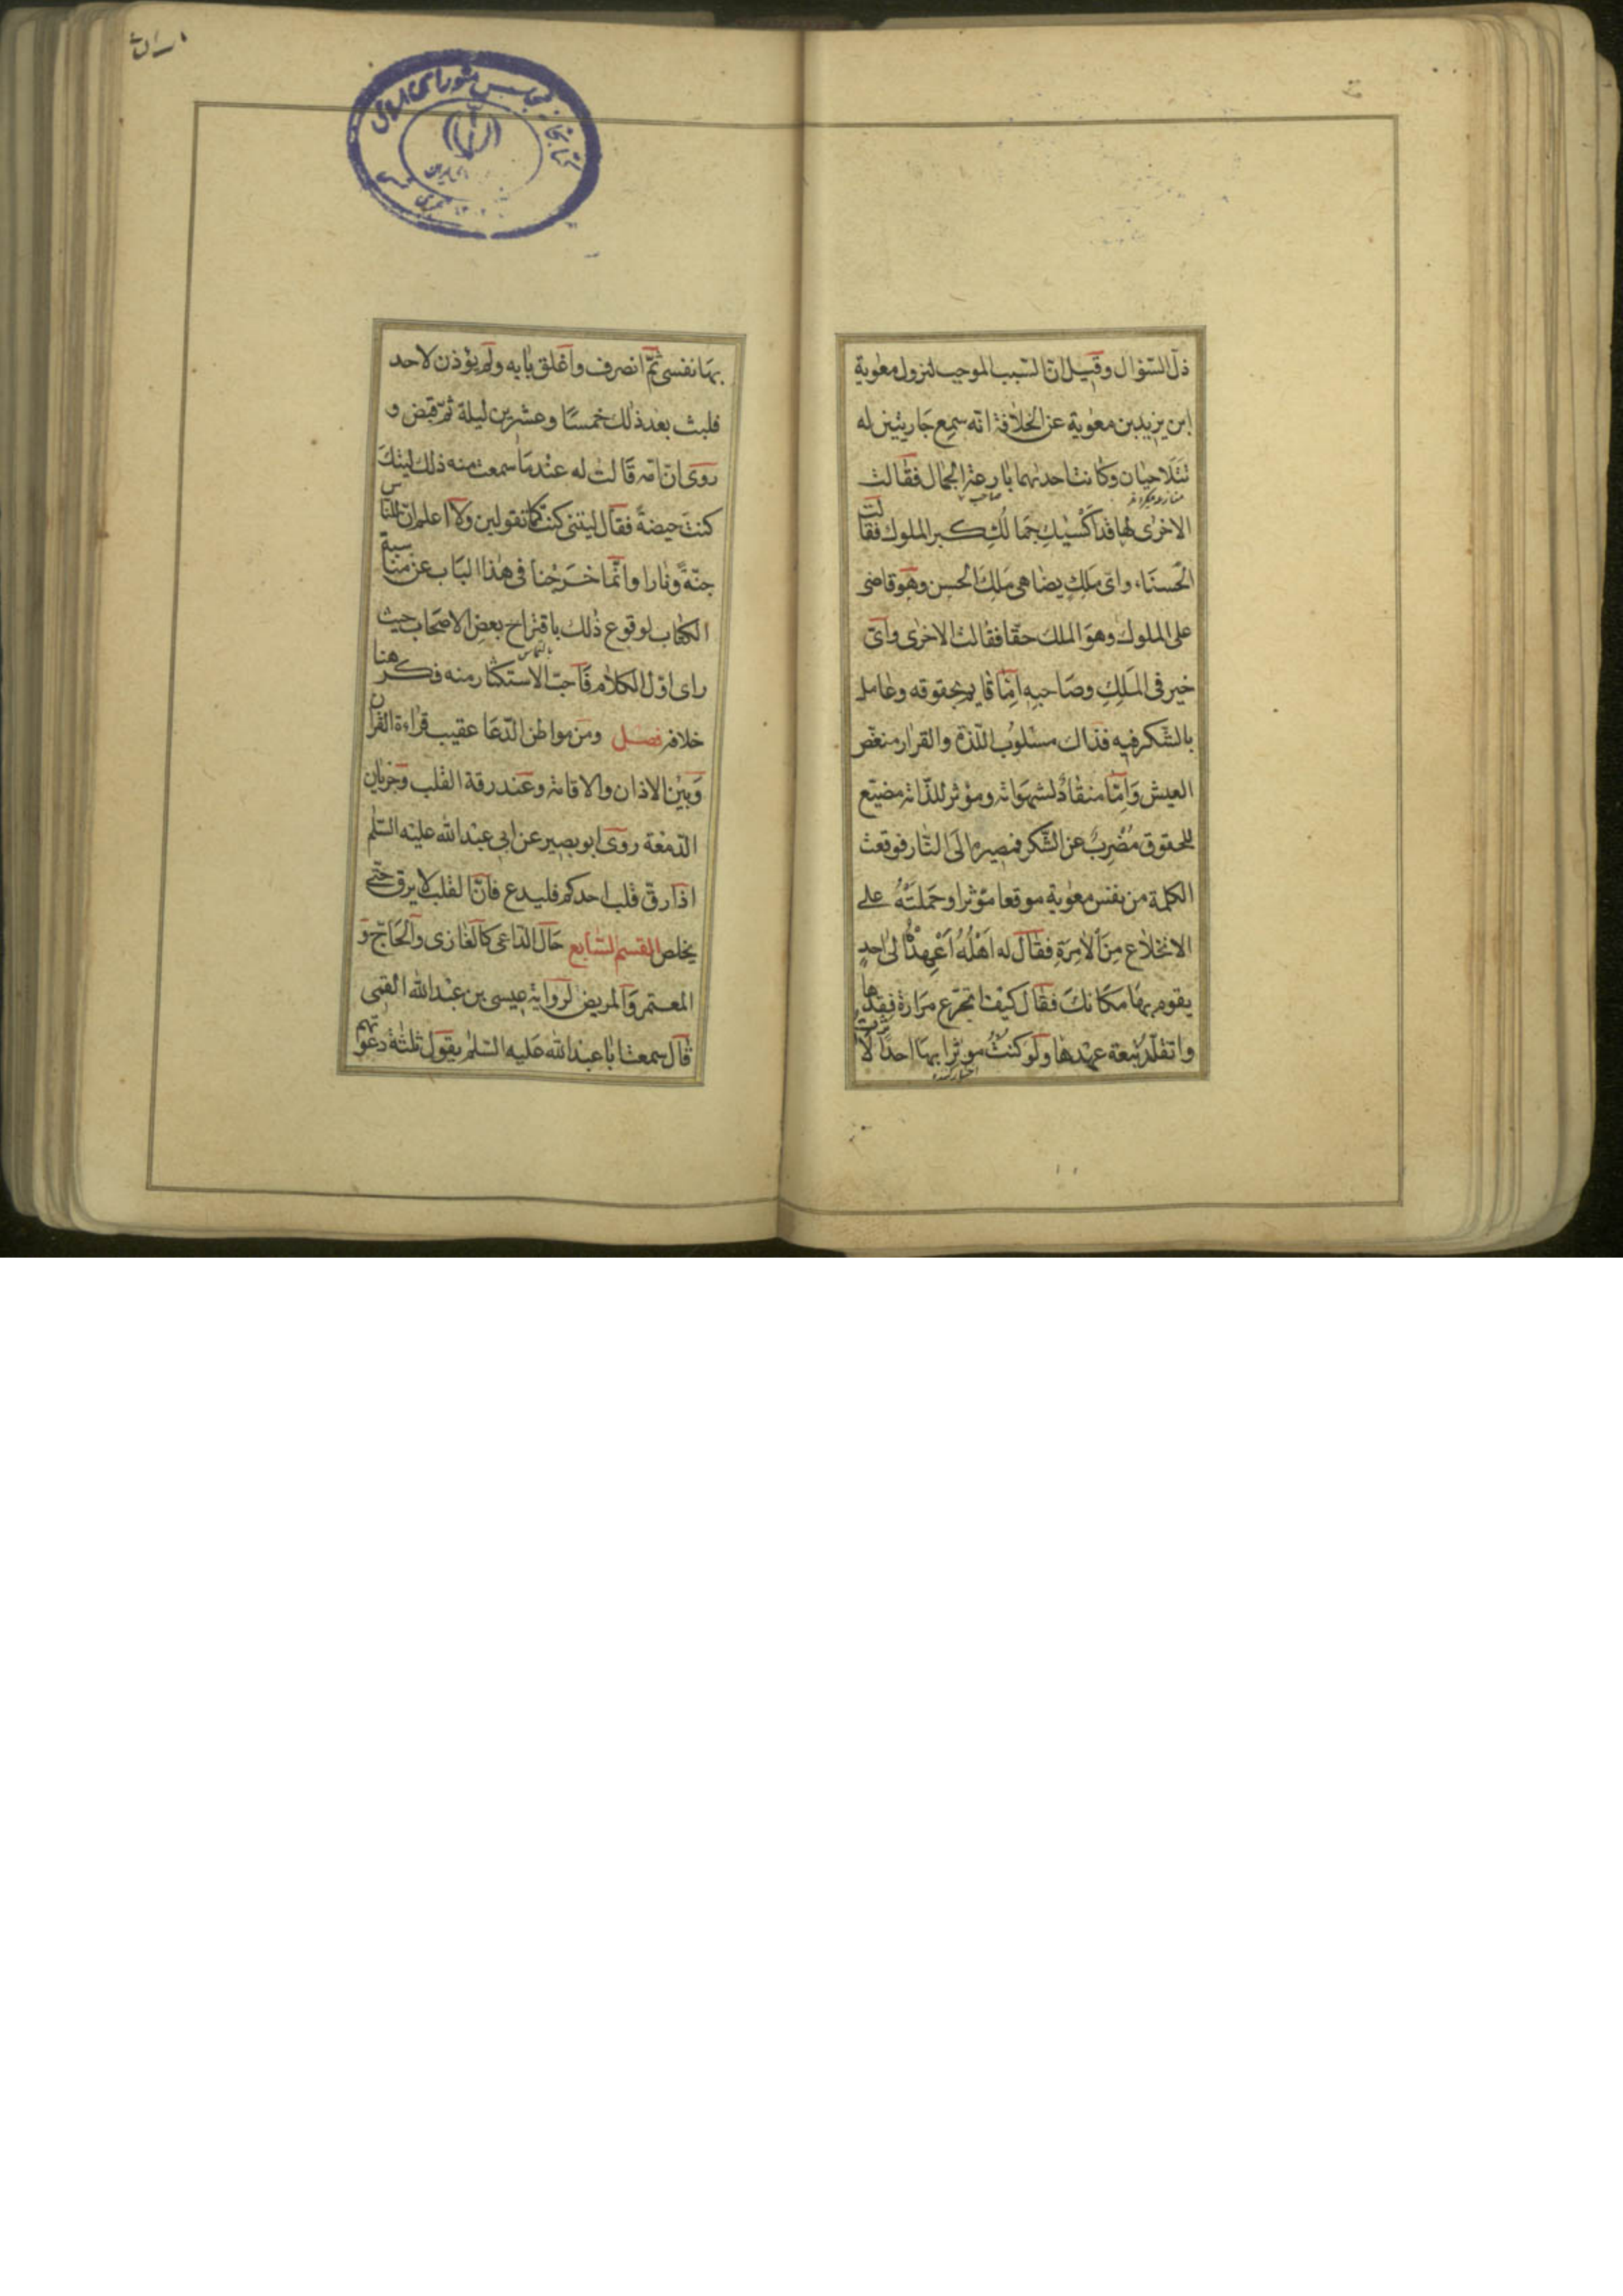 ذلّ السّؤال وقيل انّ السّبب الموجب لنزول معوية
ابن يزيد بن معوية عن الخلافة انّه سمع جاريتين له
تتلاحيان وكانت احديهما بارعة الجمال فقالت
الاخرى لها قد اكسبكِ جمالكِ كبر الملوك فقالت
الحسناء واىّ ملك يضاهى ملك الحسن وهو قاضى
على الملوك وهو الملك حقّا فقالت الاخرى واىّ
خير فى الملك وصاحبه امّا قايم بحقوقه وعامل
بالشّكر فيه فذاك مسلوب اللّذّة والقرار منغّص
العيش وامّا منقاد لشهواته ومؤثر للذّاته مضيّع
للحقوق مضرب عن الشّكر فمصيره الى النّار فوقعت
الكلمة من نفس معوية موقعا مؤثرا وحملته على
الانخلاع من الامرة فقال له اهله اعهد الى احد
يقوم بها مكانك فقال كيف اتجرّع مرارة فقدها
واتقلّد تبعة عهدها ولو كنت موثرا بها احدا لاثرت
بها نفسى ثمّ انصرف واغلق بابه ولم يؤذن لاحد
فلبث بعد ذلك خمسا وعشرين ليلة ثمّ قبض و
روى انّ امّه قالت له عند ما سمعت منه ذلك ليتك
كنت حيضة فقال ليتنى كنت كما تقولين ولا اعلم انّ للنّاس
جنّة ونارا وانّما خرجنا فى هذا الباب عن مناسبة
الكتاب لوقوع ذلك باقتراح بعض الاصحاب حيث
راى اوّل الكلام فاحبّ الاستكثار منه فكرهنا
خلافه فصل ومن مواطن الدّعا عقيب قراءة القرآن
وبين الاذان والاقامة وعند رقة القلب وجريان
الدّمعة روى ابو بصير عن ابى عبد الله عليه السّلم
اذا رقّ قلب احدكم فليدع فانّ القلب لا يرق حتّى
يخلص القسم السّابع حال الدّاعى كالغازى والحاجّ و
المعتمر والمريض لرواية عيسى بن عبد الله القمى
قال سمعت ابا عبد الله عليه السّلم يقول ثلثة دعوتهم